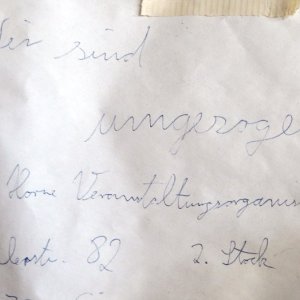 Wir sind
umgezoge
Horne Veranstaltungsorganis
str. 82 2. Stock